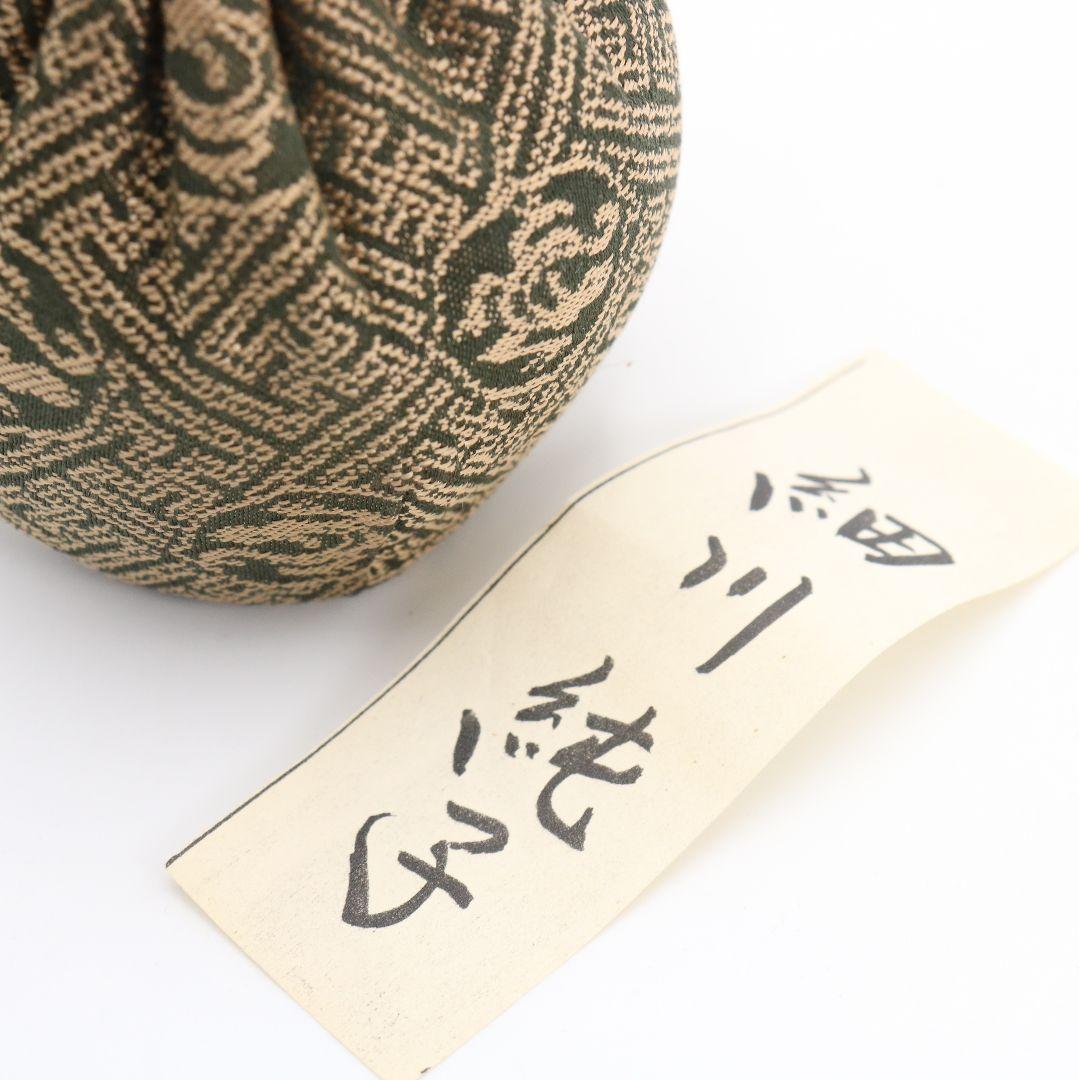 細川純子